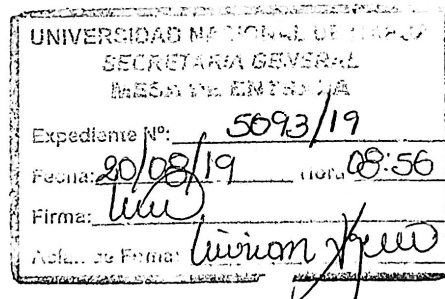 UNIVERSIDAD NACIONAL DE
SECRETARIA GENERAL
MESA DE ENTRADA
Expediente Nº: 5093/19
Fecha: 20/08/19 Hora: 08:56
Firma:
Aclar. de Firma: